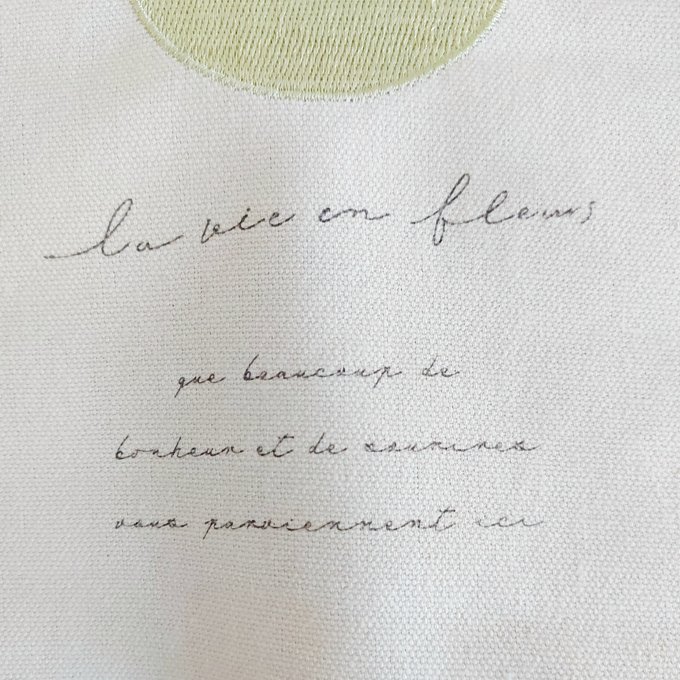 la vie en fleurs
que beaucoup de
bonheur et de sourires
vous parviennent ici